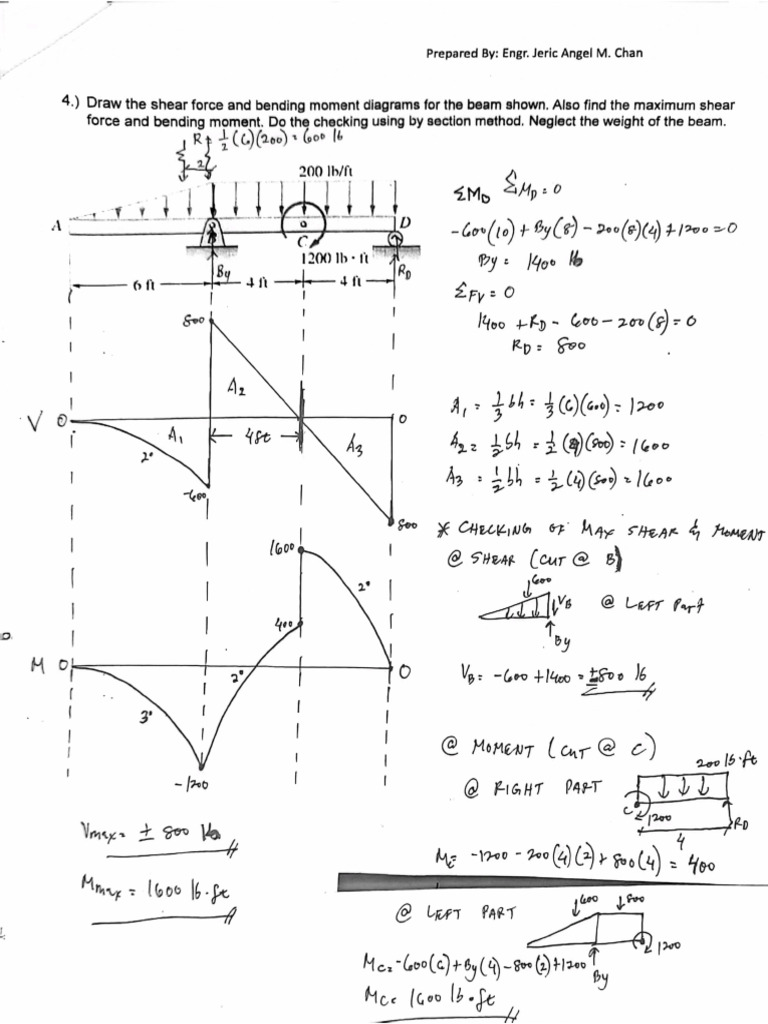 Prepared By: Engr. Jeric Angel M. Chan
4.) Draw the shear force and bending moment diagrams for the beam shown. Also find the maximum shear
force and bending moment. Do the checking using by section method. Neglect the weight of the beam.
R = 1/2 (6)(200) = 600 lb
2
200 lb/ft
A
D
C
1200 lb · ft
By
RD
6 ft
4 ft
4 ft
ΣMD ΣMD = 0
-600(10) + By(8) - 200(8)(4) + 1200 = 0
By = 1400 lb
ΣFV = 0
1400 + RD - 600 - 200(8) = 0
RD = 800
800
A2
V 0
A1
4ft
0
A3
2°
-600
800
A1 = 1/3 bh = 1/3 (6)(600) = 1200
A2 = 1/2 bh = 1/2 (4)(800) = 1600
A3 = 1/2 bh = 1/2 (4)(800) = 1600
* CHECKING OF MAX SHEAR & MOMENT
@ SHEAR (CUT @ B)
600
VB
@ LEFT Part
By
VB = -600 + 1400 = ±800 lb
1600
2°
400
M 0
2°
0
3°
-1200
@ MOMENT (CUT @ C)
@ RIGHT PART
200 lb·ft
C
1200
RD
4
Mc = -1200 - 200(4)(2) + 800(4) = 400
Vmax = ± 800 lb
Mmax = 1600 lb·ft
@ LEFT PART
600
800
1200
By
Mc = -600(6) + By(4) - 800(2) + 1200
Mc = 1600 lb·ft